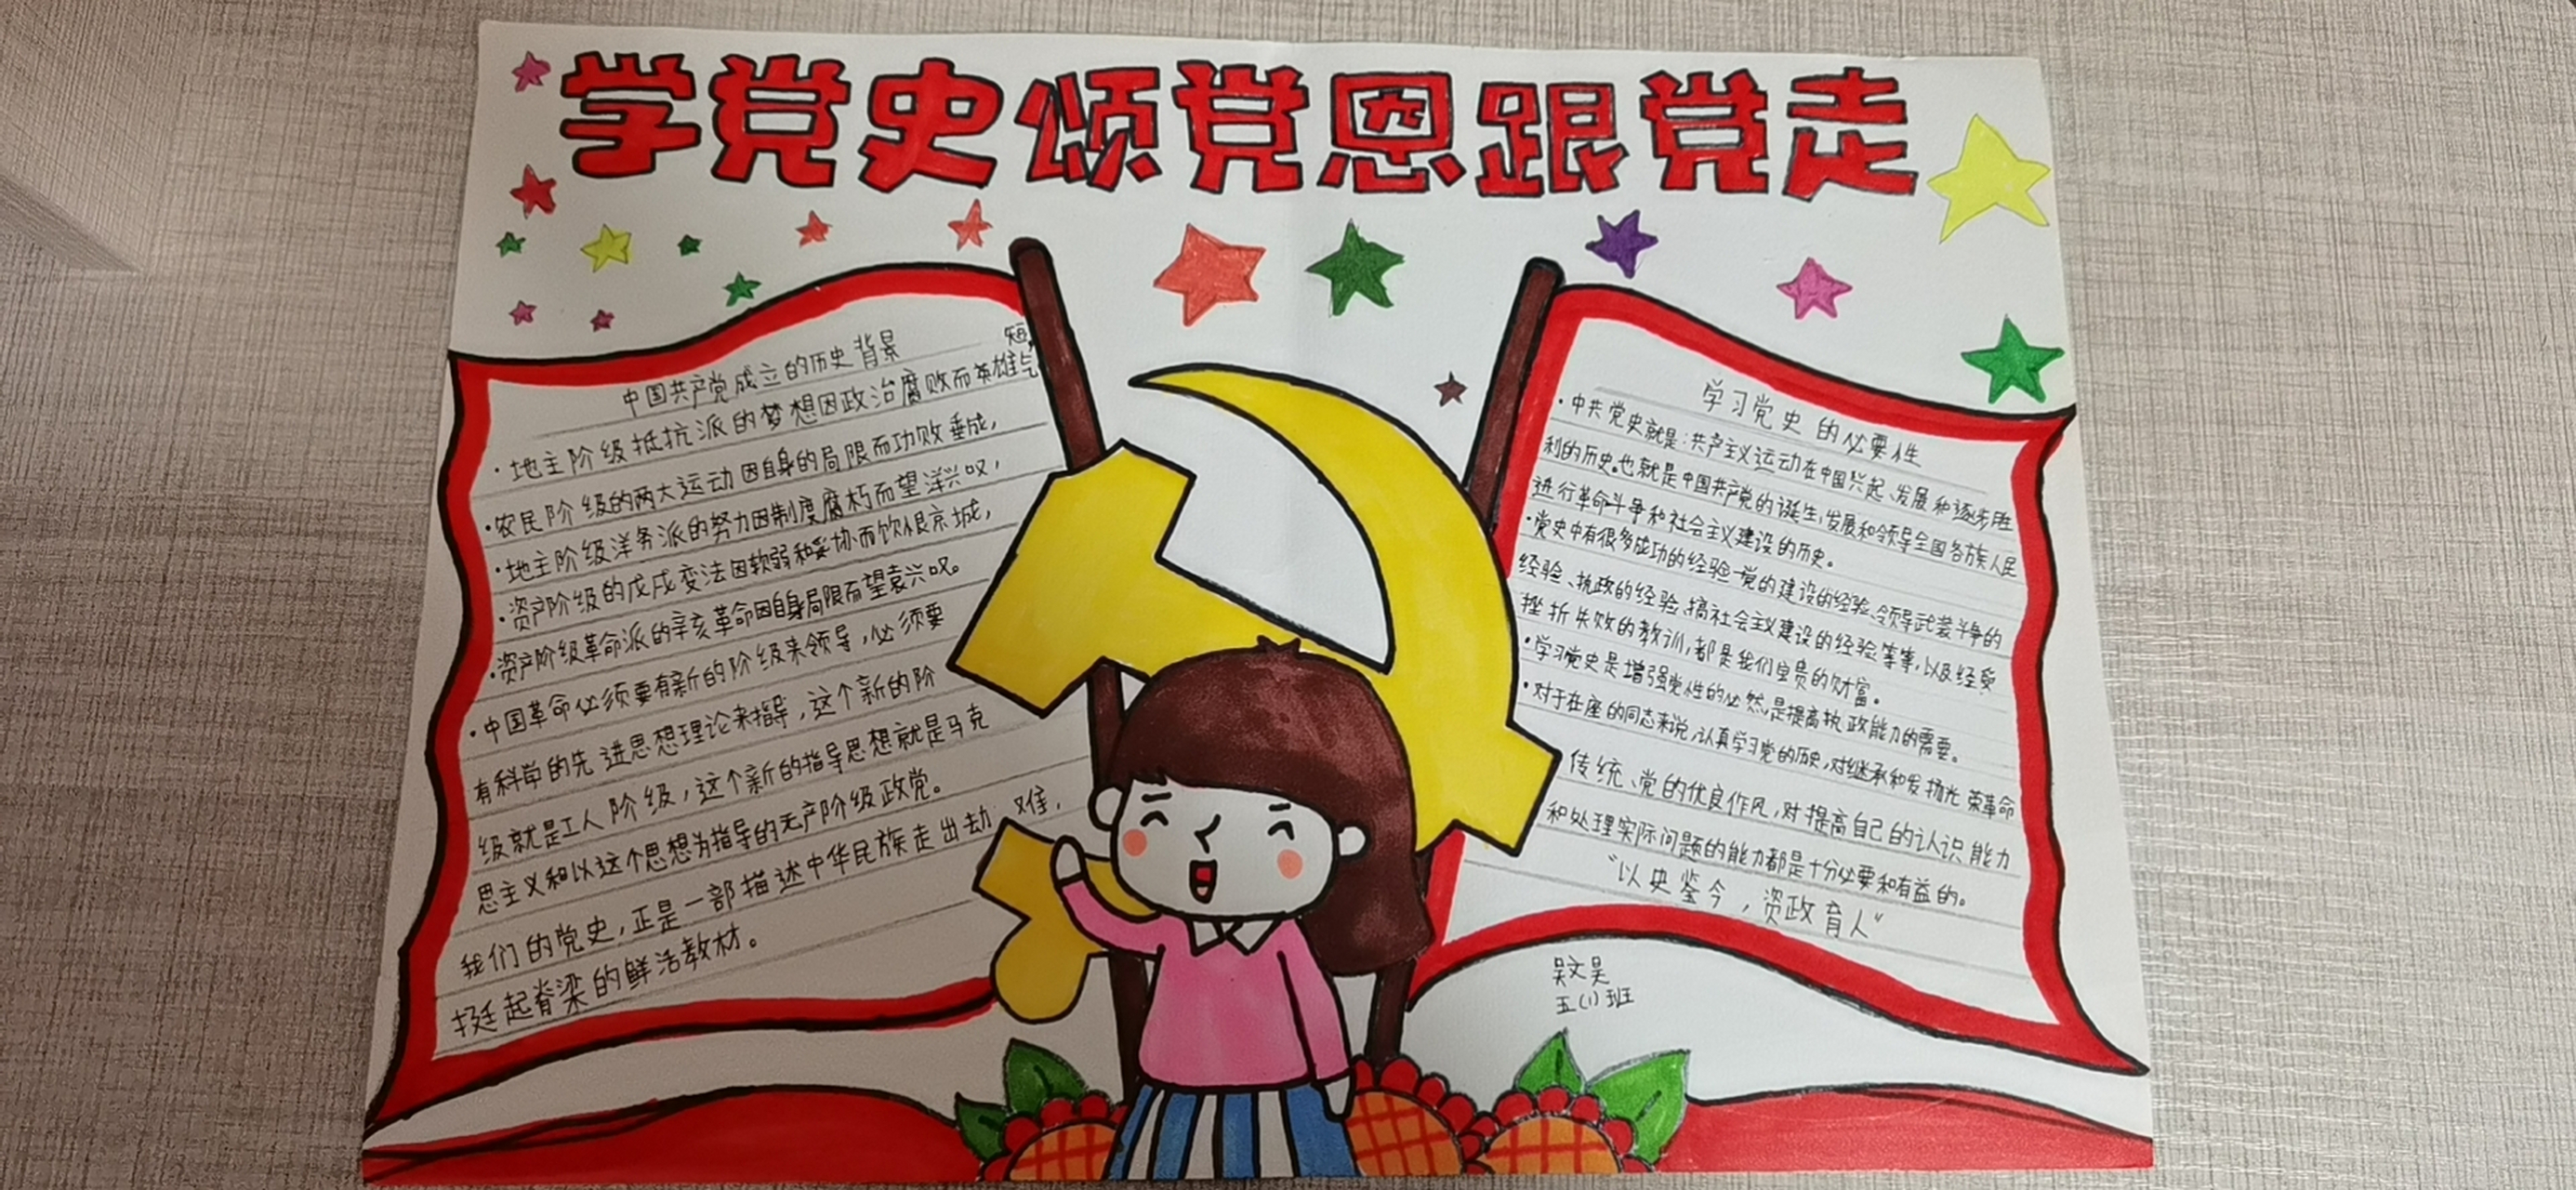 学党史颂党恩跟党走
中国共产党成立的历史背景
·地主阶级抵抗派的梦想因政治腐败而英雄气短,
·农民阶级的两大运动因自身的局限而功败垂成,
·地主阶级洋务派的努力因制度腐朽而望洋兴叹,
·资产阶级的戊戌变法因软弱和妥协而饮恨京城,
·资产阶级革命派的辛亥革命因自身局限而望袁兴叹。
·中国革命必须要有新的阶级来领导,必须要
有科学的先进思想理论来指导,这个新的阶
级就是工人阶级,这个新的指导思想就是马克
思主义和以这个思想为指导的无产阶级政党。
我们的党史,正是一部描述中华民族走出劫难,
挺起脊梁的鲜活教材。
学习党史的必要性
·中共党史就是:共产主义运动在中国兴起、发展和逐步胜
利的历史。也就是中国共产党的诞生,发展和领导全国各族人民
进行革命斗争和社会主义建设的历史。
·党史中有很多成功的经验-党的建设的经验、领导武装斗争的
经验、执政的经验、搞社会主义建设的经验等等,以及经受
挫折失败的教训,都是我们宝贵的财富。
·学习党史是增强党性的必然,是提高执政能力的需要。
·对于在座的同志来说,认真学习党的历史,对继承和发扬光荣革命
传统、党的优良作风,对提高自己的认识能力
和处理实际问题的能力都是十分必要和有益的。
“以史鉴今,资政育人”
吴文昊
五(1)班